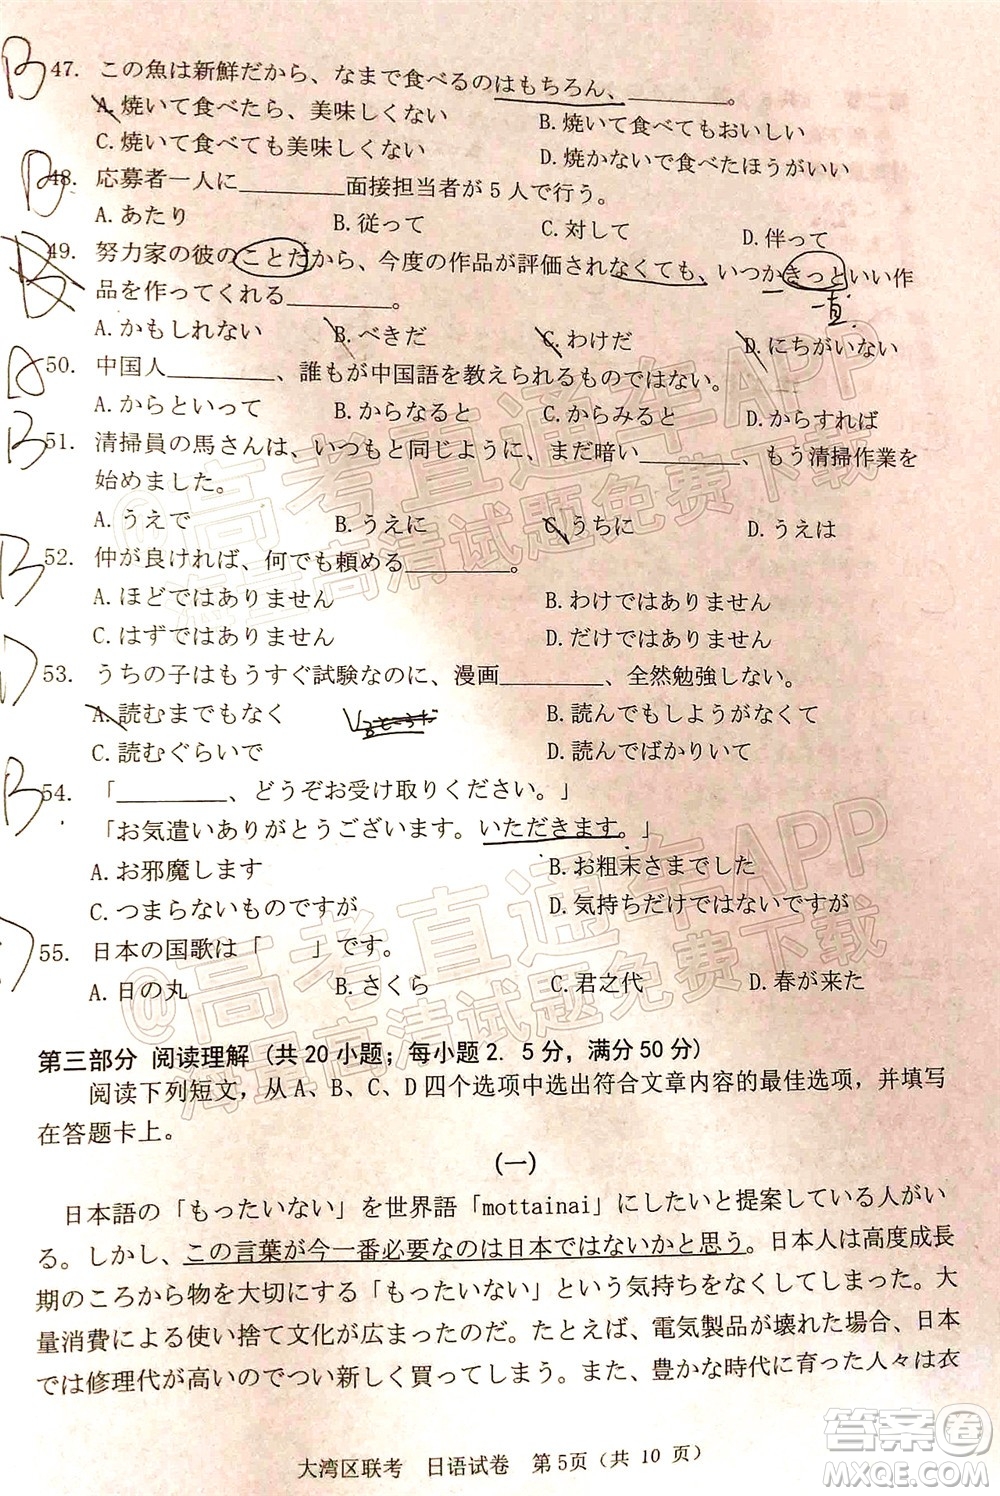 47. この魚は新鮮だから、なまで食べるのはもちろん、________。
A. 焼いて食べたら、美味しくない B. 焼いて食べてもおいしい
C. 焼いて食べても美味しくない D. 焼かないで食べたほうがいい
48. 応募者一人に________面接担当者が5人で行う。
A. あたり B. 従って C. 対して D. 伴って
49. 努力家の彼のことだから、今度の作品が評価されなくても、いつかきっといい作
品を作ってくれる________。
一直
A. かもしれない B. べきだ C. わけだ D. にちがいない
50. 中国人________、誰もが中国語を教えられるものではない。
A. からといって B. からなると C. からみると D. からすれば
51. 清掃員の馬さんは、いつもと同じように、まだ暗い________、もう清掃作業を
始めました。
A. うえで B. うえに C. うちに D. うえは
52. 仲が良ければ、何でも頼める________。
A. ほどではありません B. わけではありません
C. はずではありません D. だけではありません
53. うちの子はもうすぐ試験なのに、漫画________、全然勉強しない。
A. 読むまでもなく B. 読んでもしようがなくて
C. 読むぐらいで D. 読んでばかりいて
54. 「________、どうぞお受け取りください。」
「お気遣いありがとうございます。いただきます。」
A. お邪魔します B. お粗末さまでした
C. つまらないものですが D. 気持ちだけではないですが
55. 日本の国歌は「　　」です。
A. 日の丸 B. さくら C. 君之代 D. 春が来た
第三部分 阅读理解（共20小题；每小题2.5分，满分50分）
阅读下列短文，从A、B、C、D四个选项中选出符合文章内容的最佳选项，并填写
在答题卡上。
(一)
日本語の「もったいない」を世界語「mottainai」にしたいと提案している人がい
る。しかし、この言葉が今一番必要なのは日本ではないかと思う。日本人は高度成長
期のころから物を大切にする「もったいない」という気持ちをなくしてしまった。大
量消費による使い捨て文化が広まったのだ。たとえば、電気製品が壊れた場合、日本
では修理代が高いのでつい新しく買ってしまう。また、豊かな時代に育った人々は衣
大湾区联考 日语试卷 第5页（共 10 页）
@高考直通车APP
海量高清试题免费下载
@高考直通车APP
海量高清试题免费下载
答案卷
MXQE.COM